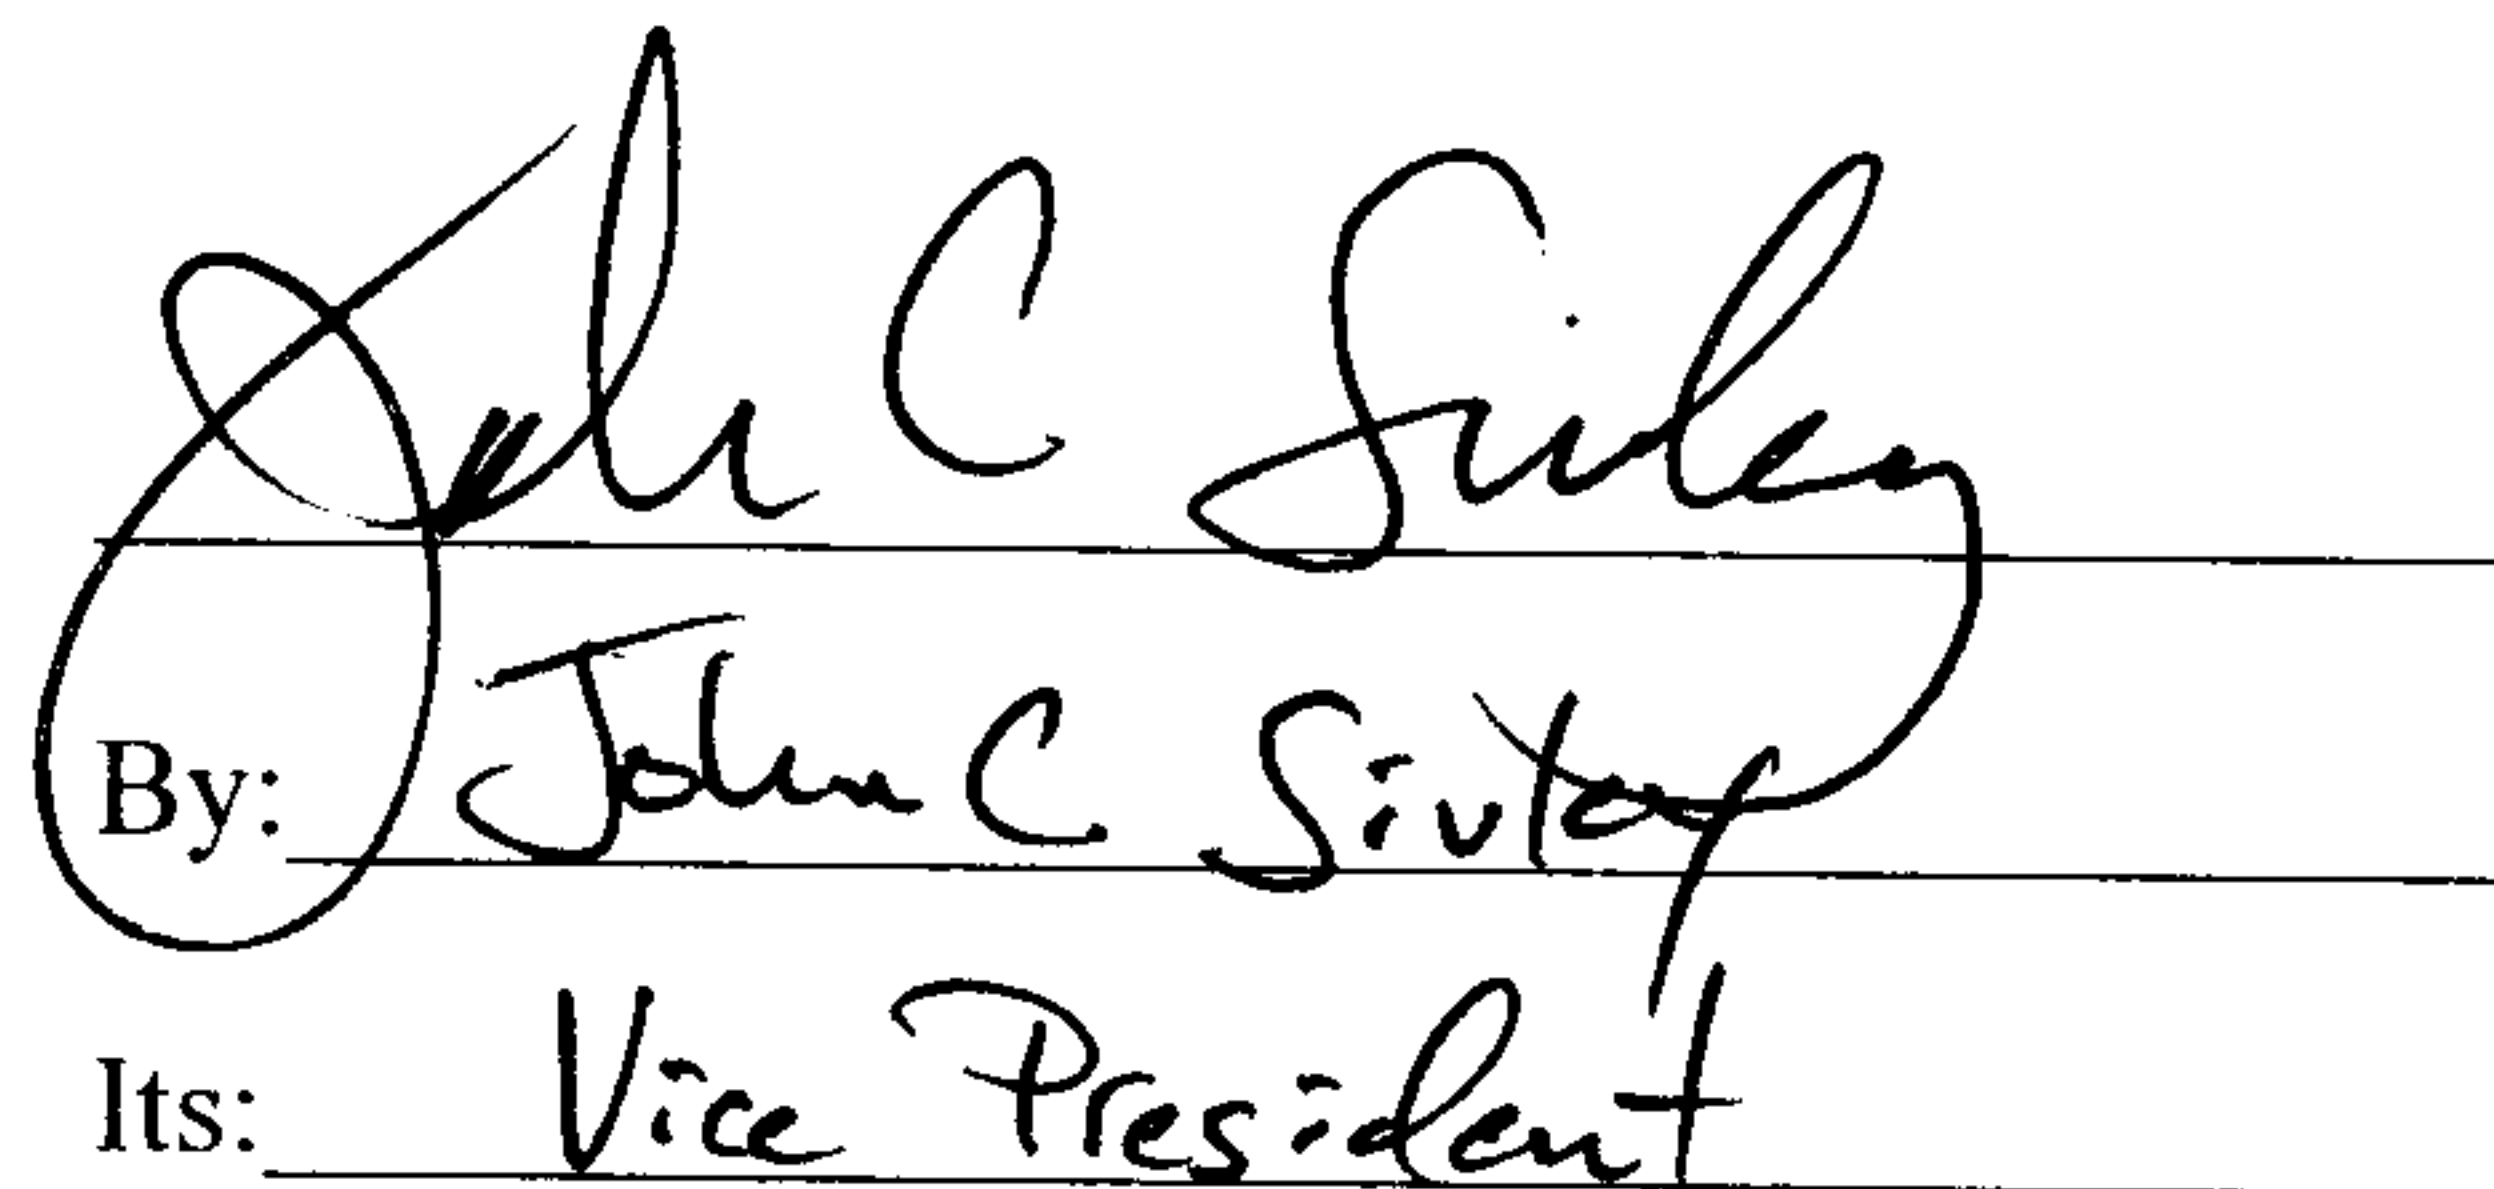 John C Sivley
By: John C Sivley
Its: Vice President